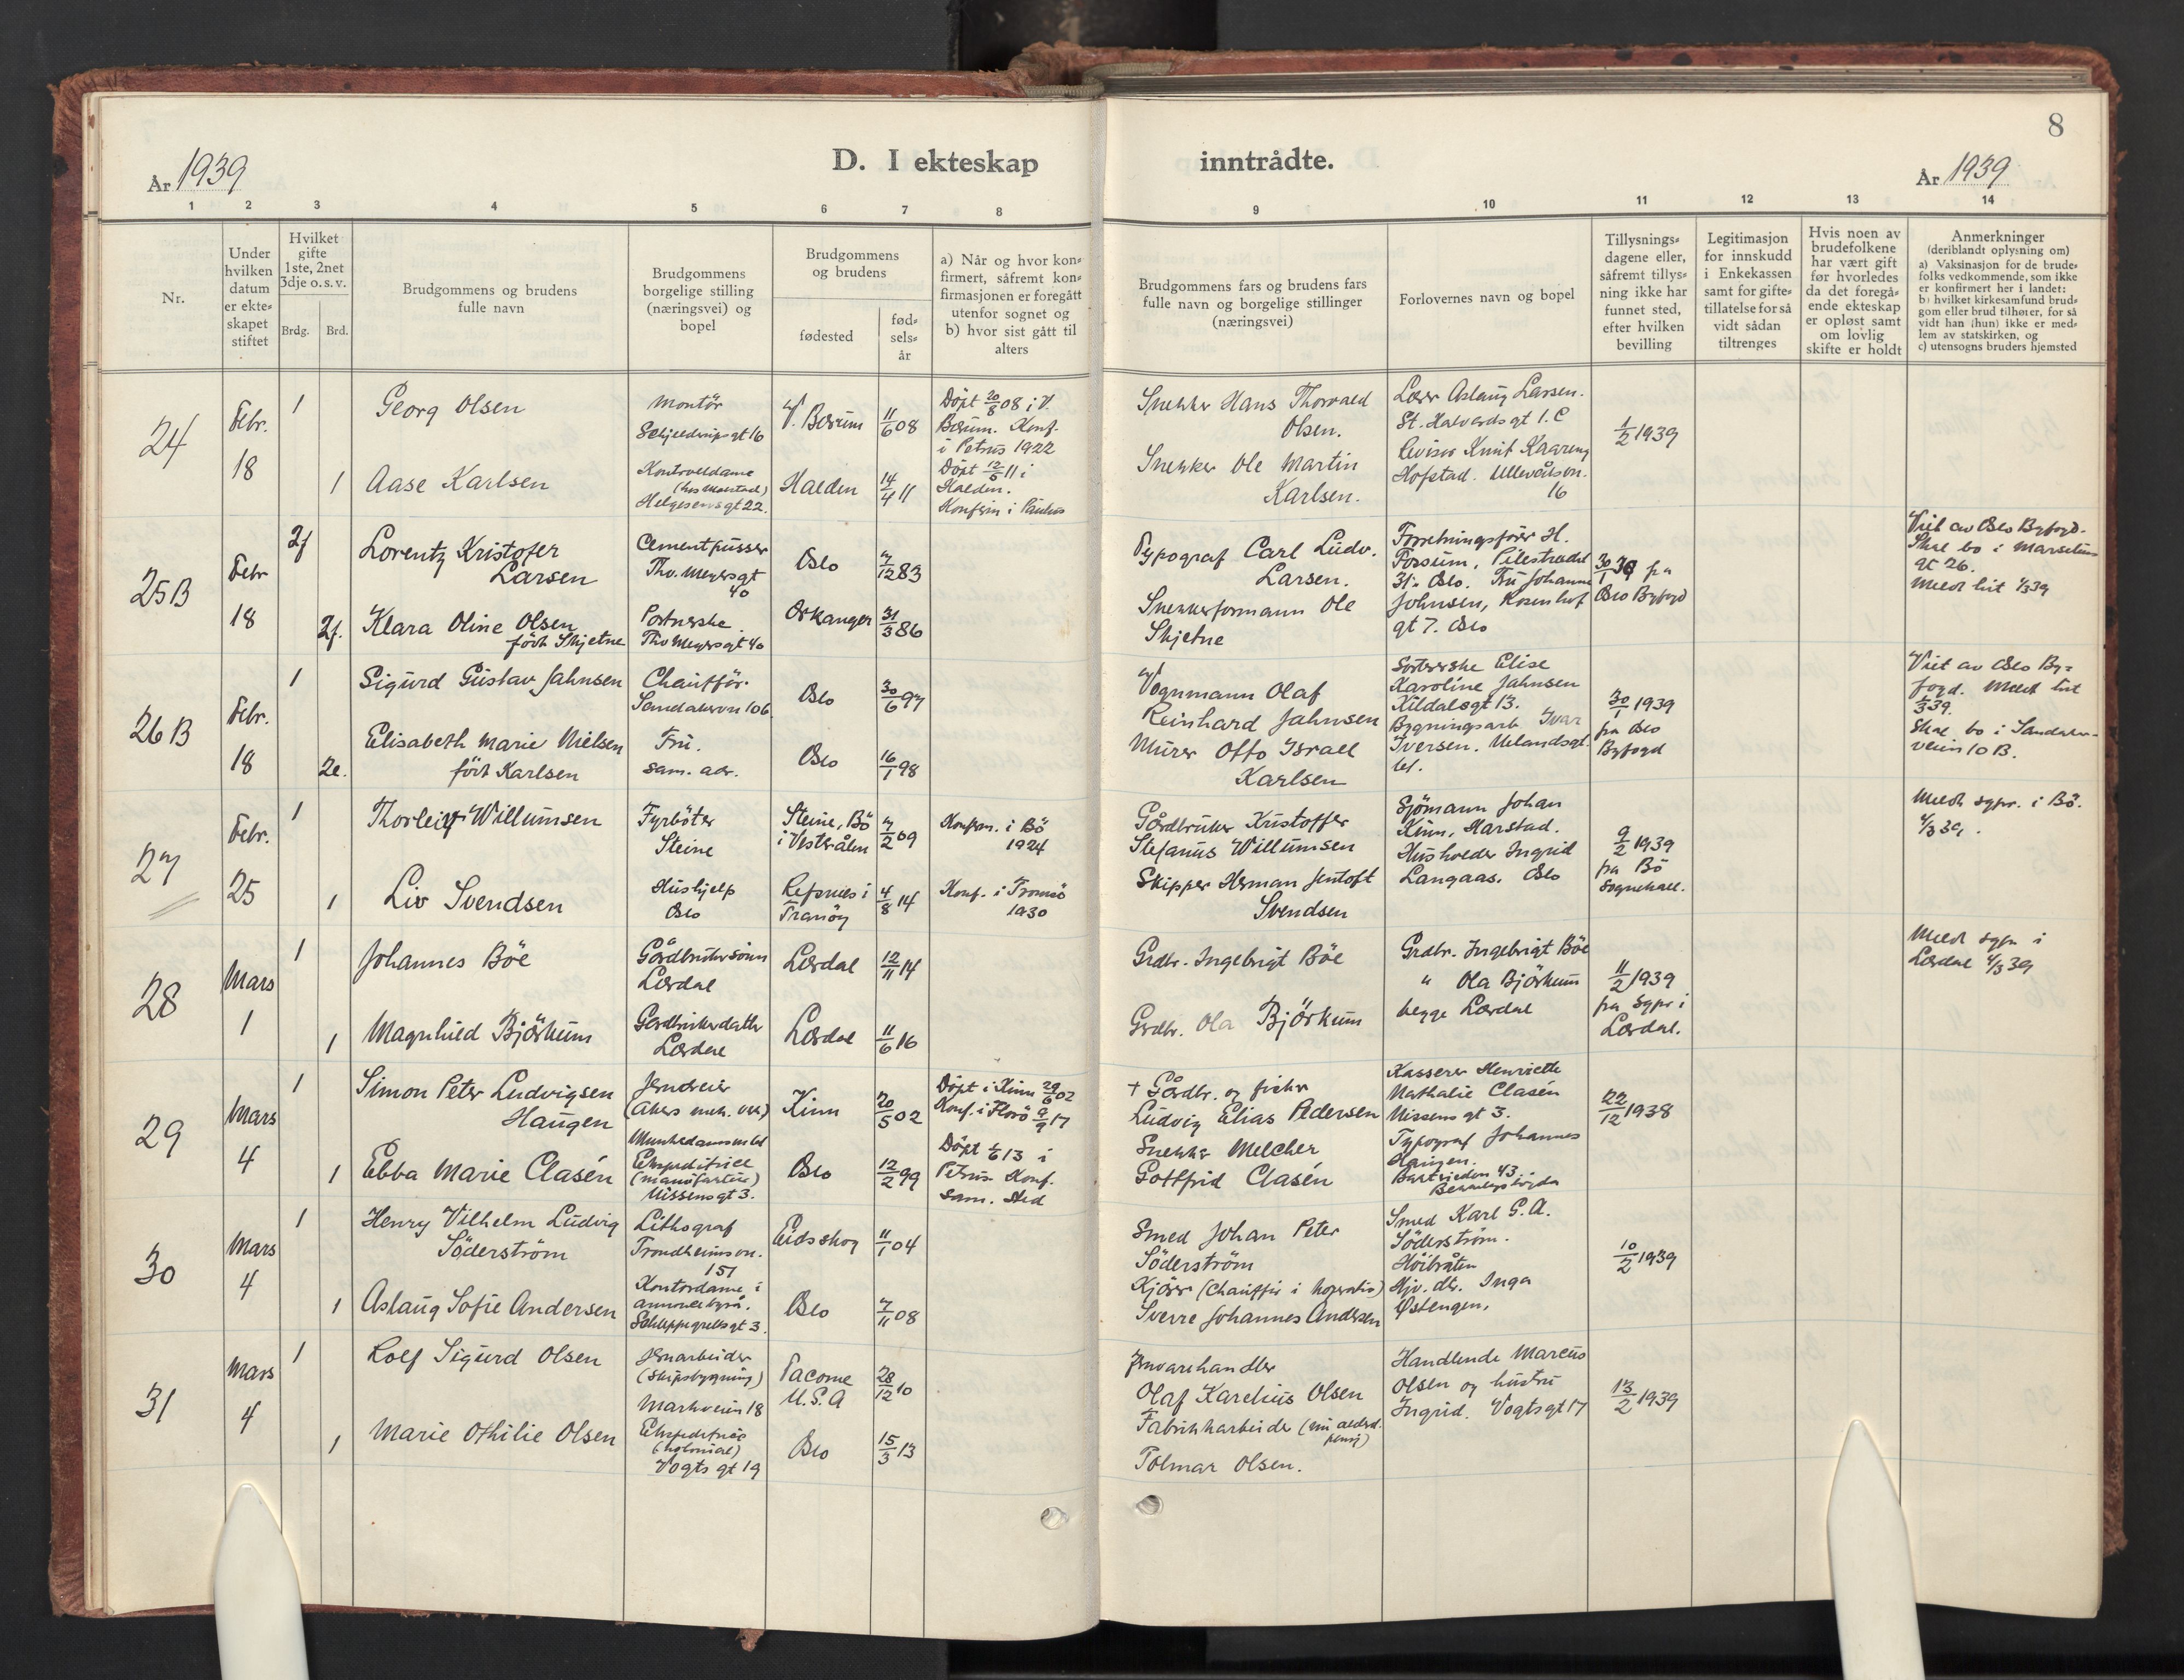 8
D. I ekteskap inntrådte.
År 1939
År 1939
1 2 3 4 5 6 7 8 9 10 11 12 13 14
Nr.
Under
hvilken
datum
er ekte-
skapet
stiftet
Hvilket
gifte
1ste, 2net
3dje o. s. v.
Brdg. Brd.
Brudgommens og brudens
fulle navn
Brudgommens
borgelige stilling
(næringsvei) og
bopel
Brudgommens
og brudens
fødested
fød-
sels-
år
a) Når og hvor kon-
firmert, såfremt kon-
firmasjonen er foregått
utenfor sognet og
b) hvor sist gått til
alters
Brudgommens fars og brudens fars
fulle navn og borgelige stillinger
(næringsvei)
Forlovernes navn og bopel
Tillysnings-
dagene eller,
såfremt tillys-
ning ikke har
funnet sted,
efter hvilken
bevilling
Legitimasjon
for innskudd
i Enkekassen
samt for gifte-
tillatelse for så
vidt sådan
tiltrenges
Hvis noen av
brudefolkene
har vært gift
før hvorledes
da det foregå-
ende ekteskap
er opløst samt
om lovlig
skifte er holdt
Anmerkninger
(deriblandt oplysning om)
a) Vaksinasjon for de brude-
folks vedkommende, som ikke
er konfirmert her i landet:
b) hvilket kirkesamfund brud-
gom eller brud tilhører, for så
vidt han (hun) ikke er med-
lem av statskirken, og
c) utensogns bruders hjemsted
24
Febr.
18
1
Georg Olsen
Montör
Schjelderupsgt 16
V. Bærum
11/6 08
Döpt 20/8 08 i V.
Bærum. Konf.
i Petrus 1922
Snekker Hans Thorvald
Olsen.
Lærer Aslaug Larsen.
St. Halvardsgt 1. C
1/2 1939
1
Aase Karlsen
Kontroldame
Helgesensgt 22.
Halden
14/4 11
Döpt 12/5 11 i
Halden.
Konferm i Paulus
Snekker Ole Martin
Karlsen.
Revisor Knut Kaareng
Hofstad. Ullevålsvn.
16
25B
Febr
18
2f
Lorentz Kristofer
Larsen
Cementpusser
Thv. Meyersgt
40
Oslo
7/12 83
Typograf Carl Ludv.
Larsen.
Forretningsförer H.
Forsum, Pilestrædet
31. Oslo. Fru Johanne
Johnsen, Rosenhof
gt 7. Oslo
30/1 39 fra
Oslo Byfogd
Viet av Oslo Byfogd.
Skal bo i Marselius
gt 26.
Meldt hit 1/3 39
2f.
Klara Oline Olsen
född Skjetne
Portnerske
Thv Meyersgt 40
Orkanger
31/3 86
Snekkerformann Ole
Skjetne
26B
Febr.
18
1
Sigurd Gustav Jahnsen
Chaufför.
Sandakervn 106
Oslo
30/6 97
Vognmann Olaf
Reinhard Jahnsen
Sorterske Elise
Karoline Jahnsen
Kildalsgt 13.
Bygningsarb. Ivar
Iversen. Uelandsgt.
61.
30/1 1939
fra Oslo
Byfogd
Viet av Oslo By-
fogd. Meldt hit
1/3 39.
Skal bo i Sandaker-
veien 10 B.
2e.
Elisabeth Marie Nielsen
född Karlsen
Fru.
sam. adr.
Oslo
16/1 98
Murer Otto Israel
Karlsen
27
Febr.
25
1
Thorleif Willumsen
Fyrböter
Steine
Steine, Bö
i Vesterålen
7/2 09
Konferm. i Bö
1924
Gårdbruker Kristoffer
Stefanus Willumsen
Sjömann Johan
Kinn, Harstad.
Husholder Ingrid
Langaas. Oslo
9/2 1939
fra Bö
Sognekall.
Meldt sgpr. i Bö.
4/3 39.
1
Liv Svendsen
Hushjelp
Oslo
Refsnes i
Tranöy
4/8 14
Konf. i Tromsö
1930
Skipper Herman Jentoft
Svendsen
28
Mars
1
1
Johannes Böe
Gårdbrukersönn
Lærdal
Lærdal
12/11 14
Grdbr. Ingebrigt Böe
Grdbr. Ingebrigt Böe
" Ola Björkum
begge Lærdal
11/2 1939
fra Sgpr i
Lærdal.
Meldt sgpr i
Lærdal 4/3 39
1
Magnhild Björkum
Gårdbrukerdatter
Lærdal
Lærdal
11/6 16
Grdbr. Ola Björkum
29
Mars
4
1
Simon Peter Ludvigsen
Haugen
Jerndreier
(Akers mek. ver)
Munkedamsvn 61
Kinn
20/5 02
Döpt i Kinn 29/6 02
Konf. i Florö 9/9 17
+ Gårdbr. og fisker
Ludvig Elias Pedersen
Kasserer Henriette
Nathalie Clasén
Nissens gt 3.
Typograf Johannes
Haugen.
22/12 1938
1
Ebba Marie Clasén
Ekspeditrise
(manufaktur)
Nissensgt 3.
Oslo
12/2 99
Döpt 1/6 13 i
Petrus Konf.
sam. Sted
Snekker Melcher
Gottfrid Clasén
30
Mars
4
1
Henry Vilhelm Ludvig
Söderström
Lithograf
Trondheimsvn.
151
Eidsskog
11/1 04
Smed Johan Peter
Söderström
Smed Karl G. A.
Söderström.
Höibråten
Hjv. dtr. Inga
Østengen.
10/2 1939
1
Aslaug Sofie Andersen
Kontordame i
annoncebyrå.
Schleppegrellsgt 3.
Oslo
7/11 08
Kjörer (Chauffür i Kopratio)
Sverre Johannes Andersen
31
Mars
4
1
Rolf Sigurd Olsen
Jernarbeider
(Skipsbygning)
Markveien 18
Tacome
U.S.A
28/12 10
Jernvarehandler
Olaf Karelius Olsen
Handlende Marcus
Olsen og hustru
Ingrid. Vogtsgt 17
13/2 1939
1
Marie Othilie Olsen
Ekspeditrise
(kolonial)
Vogts gt 19
Oslo
15/3 13
Fabrikkarbeider (nu alderd.
pensj)
Tolmar Olsen.